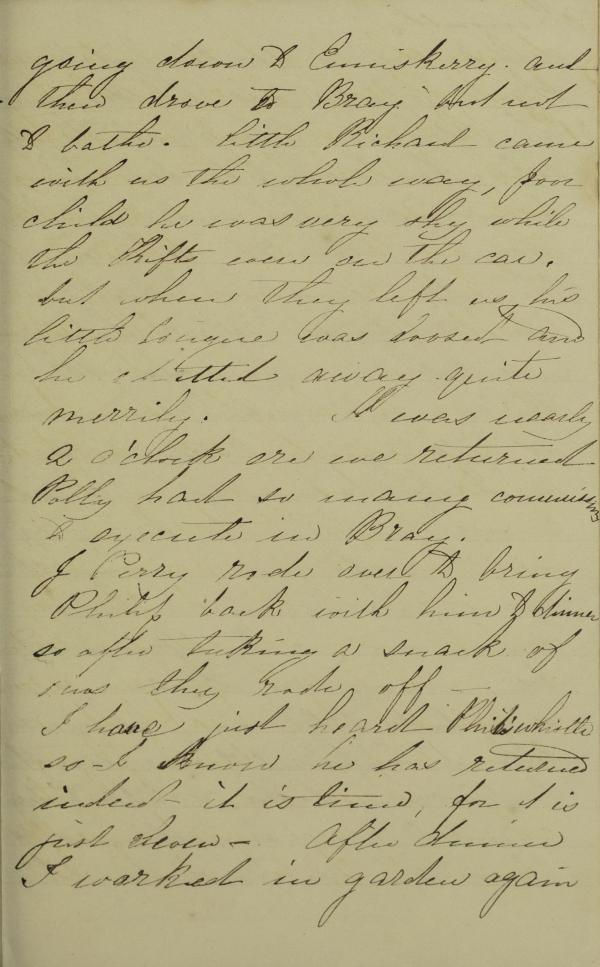 going down to Enniskerry. and
then drove to Bray but not
to bathe. little Richard came
with us the whole way, poor
child he was very shy while
the Thifts were on the car.
but when they left us his
little tongue was loosed and
he chatted away quite
merrily. It was nearly
2 o'clock ere we returned
Polly had so many commissions
to execute in Bray.
J Perry rode over to bring
Philip back with him to dinner
so after taking a snack of
they rode off —
I have just heard Phil's whistle
so I know he has returned
indeed it is time, for it is
just eleven - After dinner
I worked in garden again